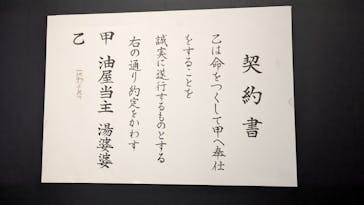 契約書
乙は命をつくして甲へ奉仕
をすることを
誠実に遂行するものとする
右の通り約定をかわす
甲 油屋当主 湯婆婆
乙